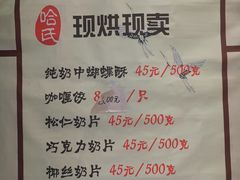 哈氏
现烘现卖
纯奶中蝴蝶酥 45元/500克
咖喱饺 8.00元/只
松仁奶片 45元/500克
巧克力奶片 45元/500克
椰丝奶片 45元/500克